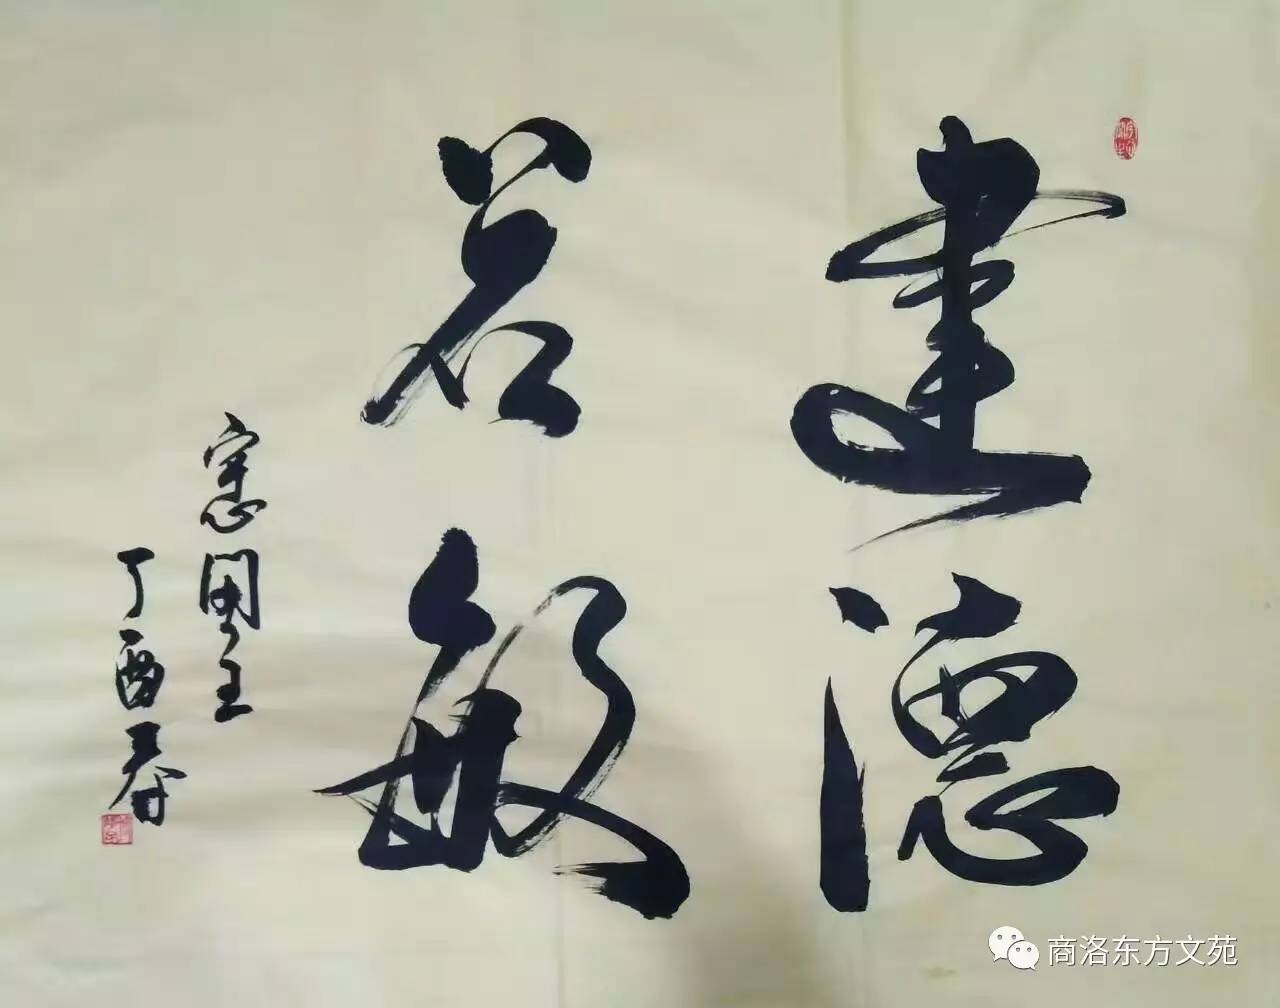 建德
若敏
丁酉春
商洛东方文苑